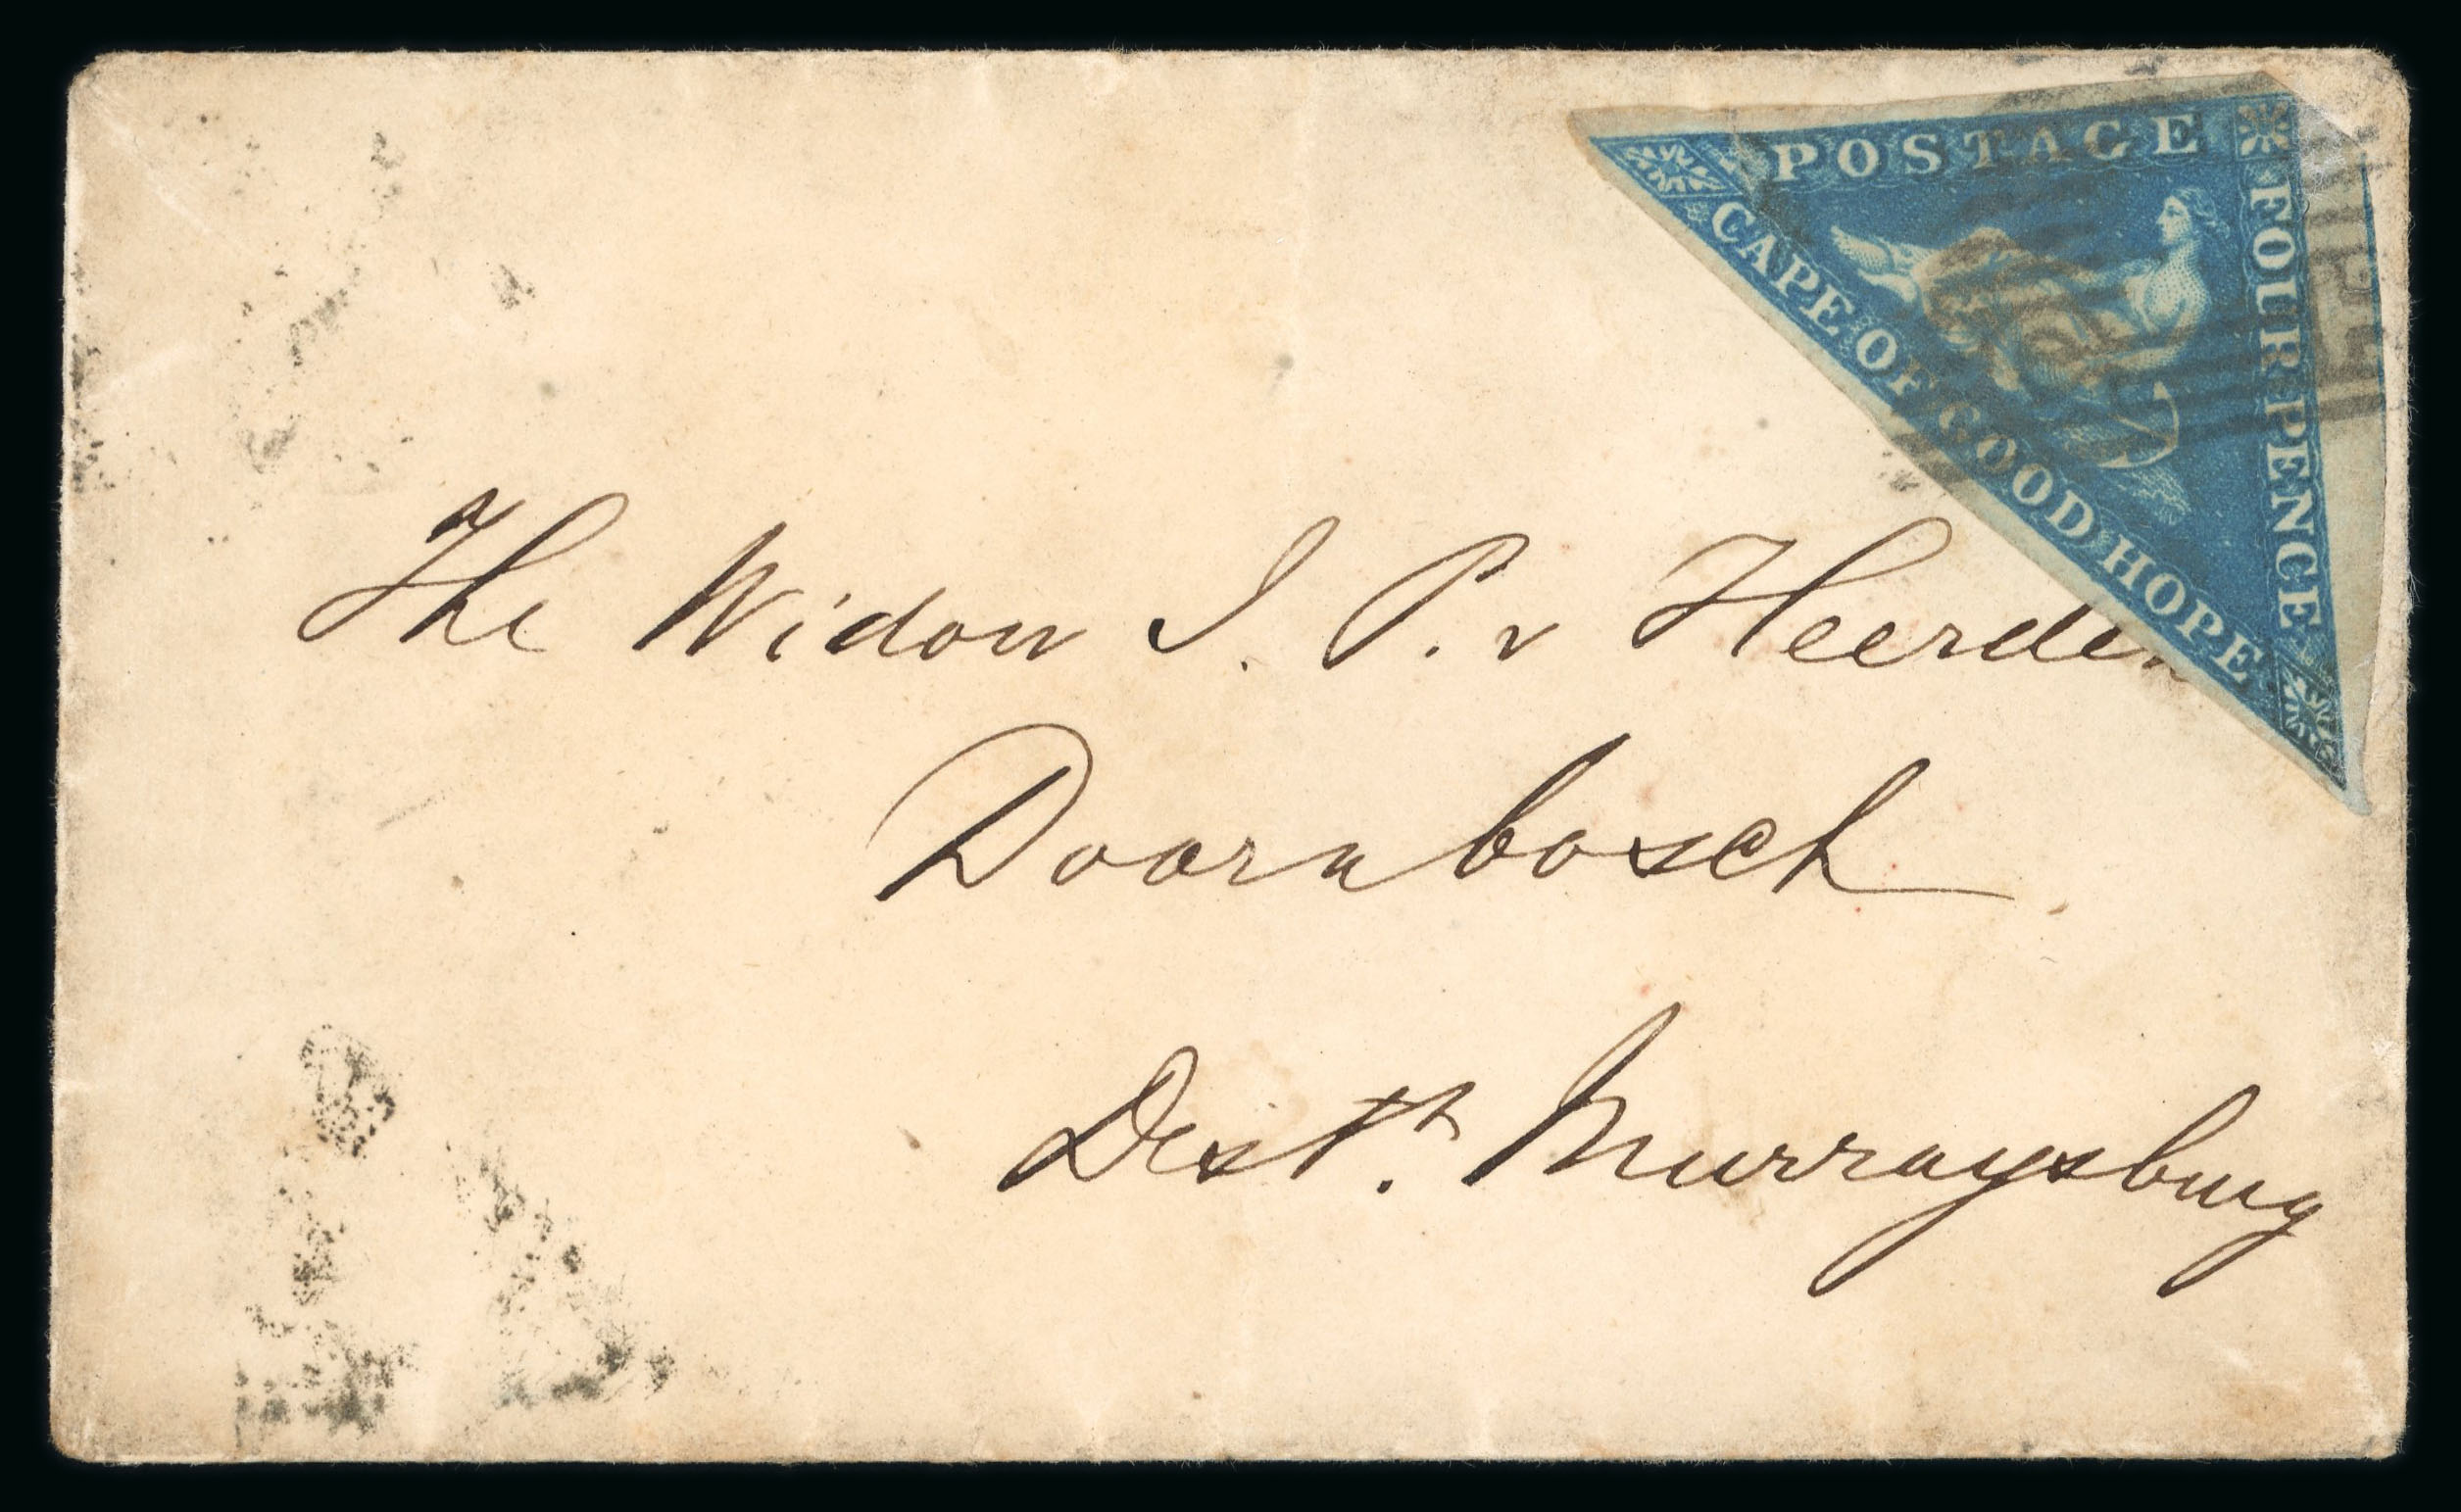 POSTAGE
FOUR PENCE
CAPE OF GOOD HOPE
The Widow J. P. v Heerden
Doornbosch
Distt. Murraysburg